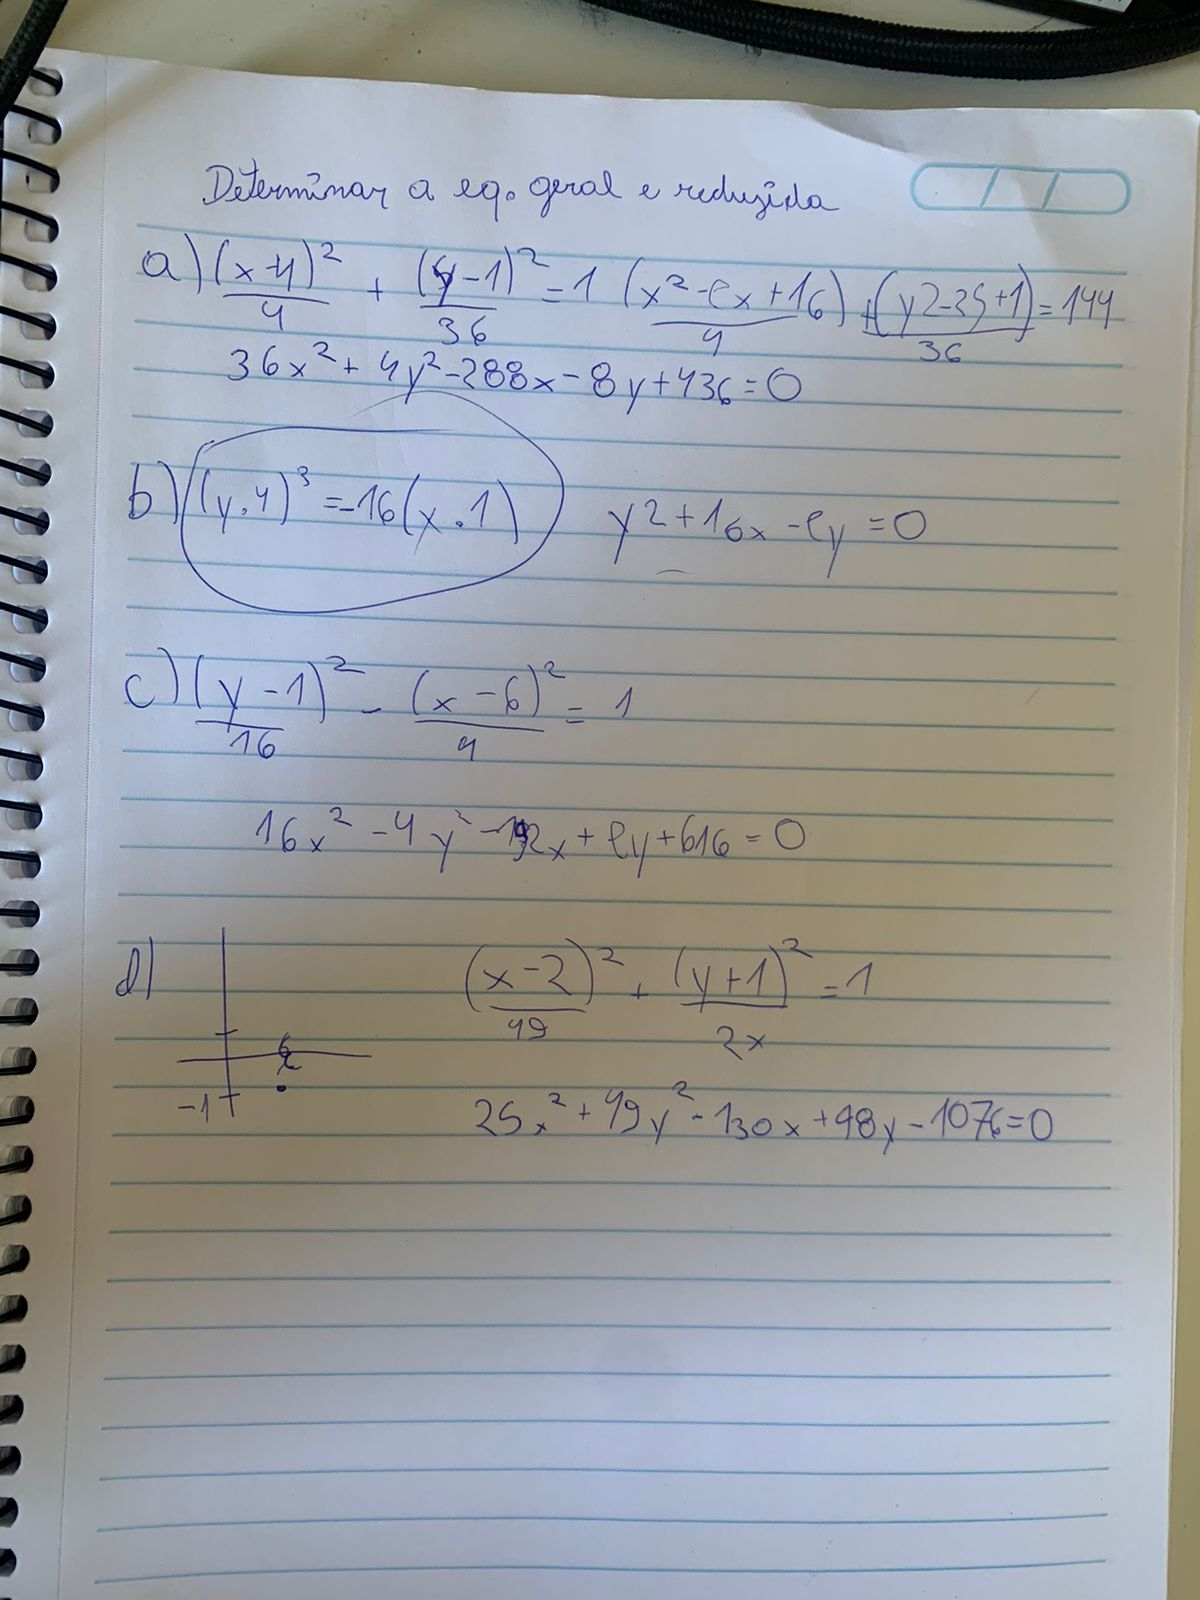 Determinar a eq. geral e reduzida
a) (x-4)²/4 + (y-1)²/36 = 1 (x²-8x+16)/4 + (y2-2y+1)/36 = 144
36x² + 4y² - 288x - 8y + 436 = 0
b) (y.4)³ = -16(x.1) y2 + 16x - 8y = 0
c) (y-1)²/16 - (x-6)²/4 = 1
16x² - 4y² - 192x + 8y + 616 = 0
d) (x-2)²/49 + (y+1)²/2x = 1
-1
25x² + 49y² - 130x + 98y - 1076 = 0